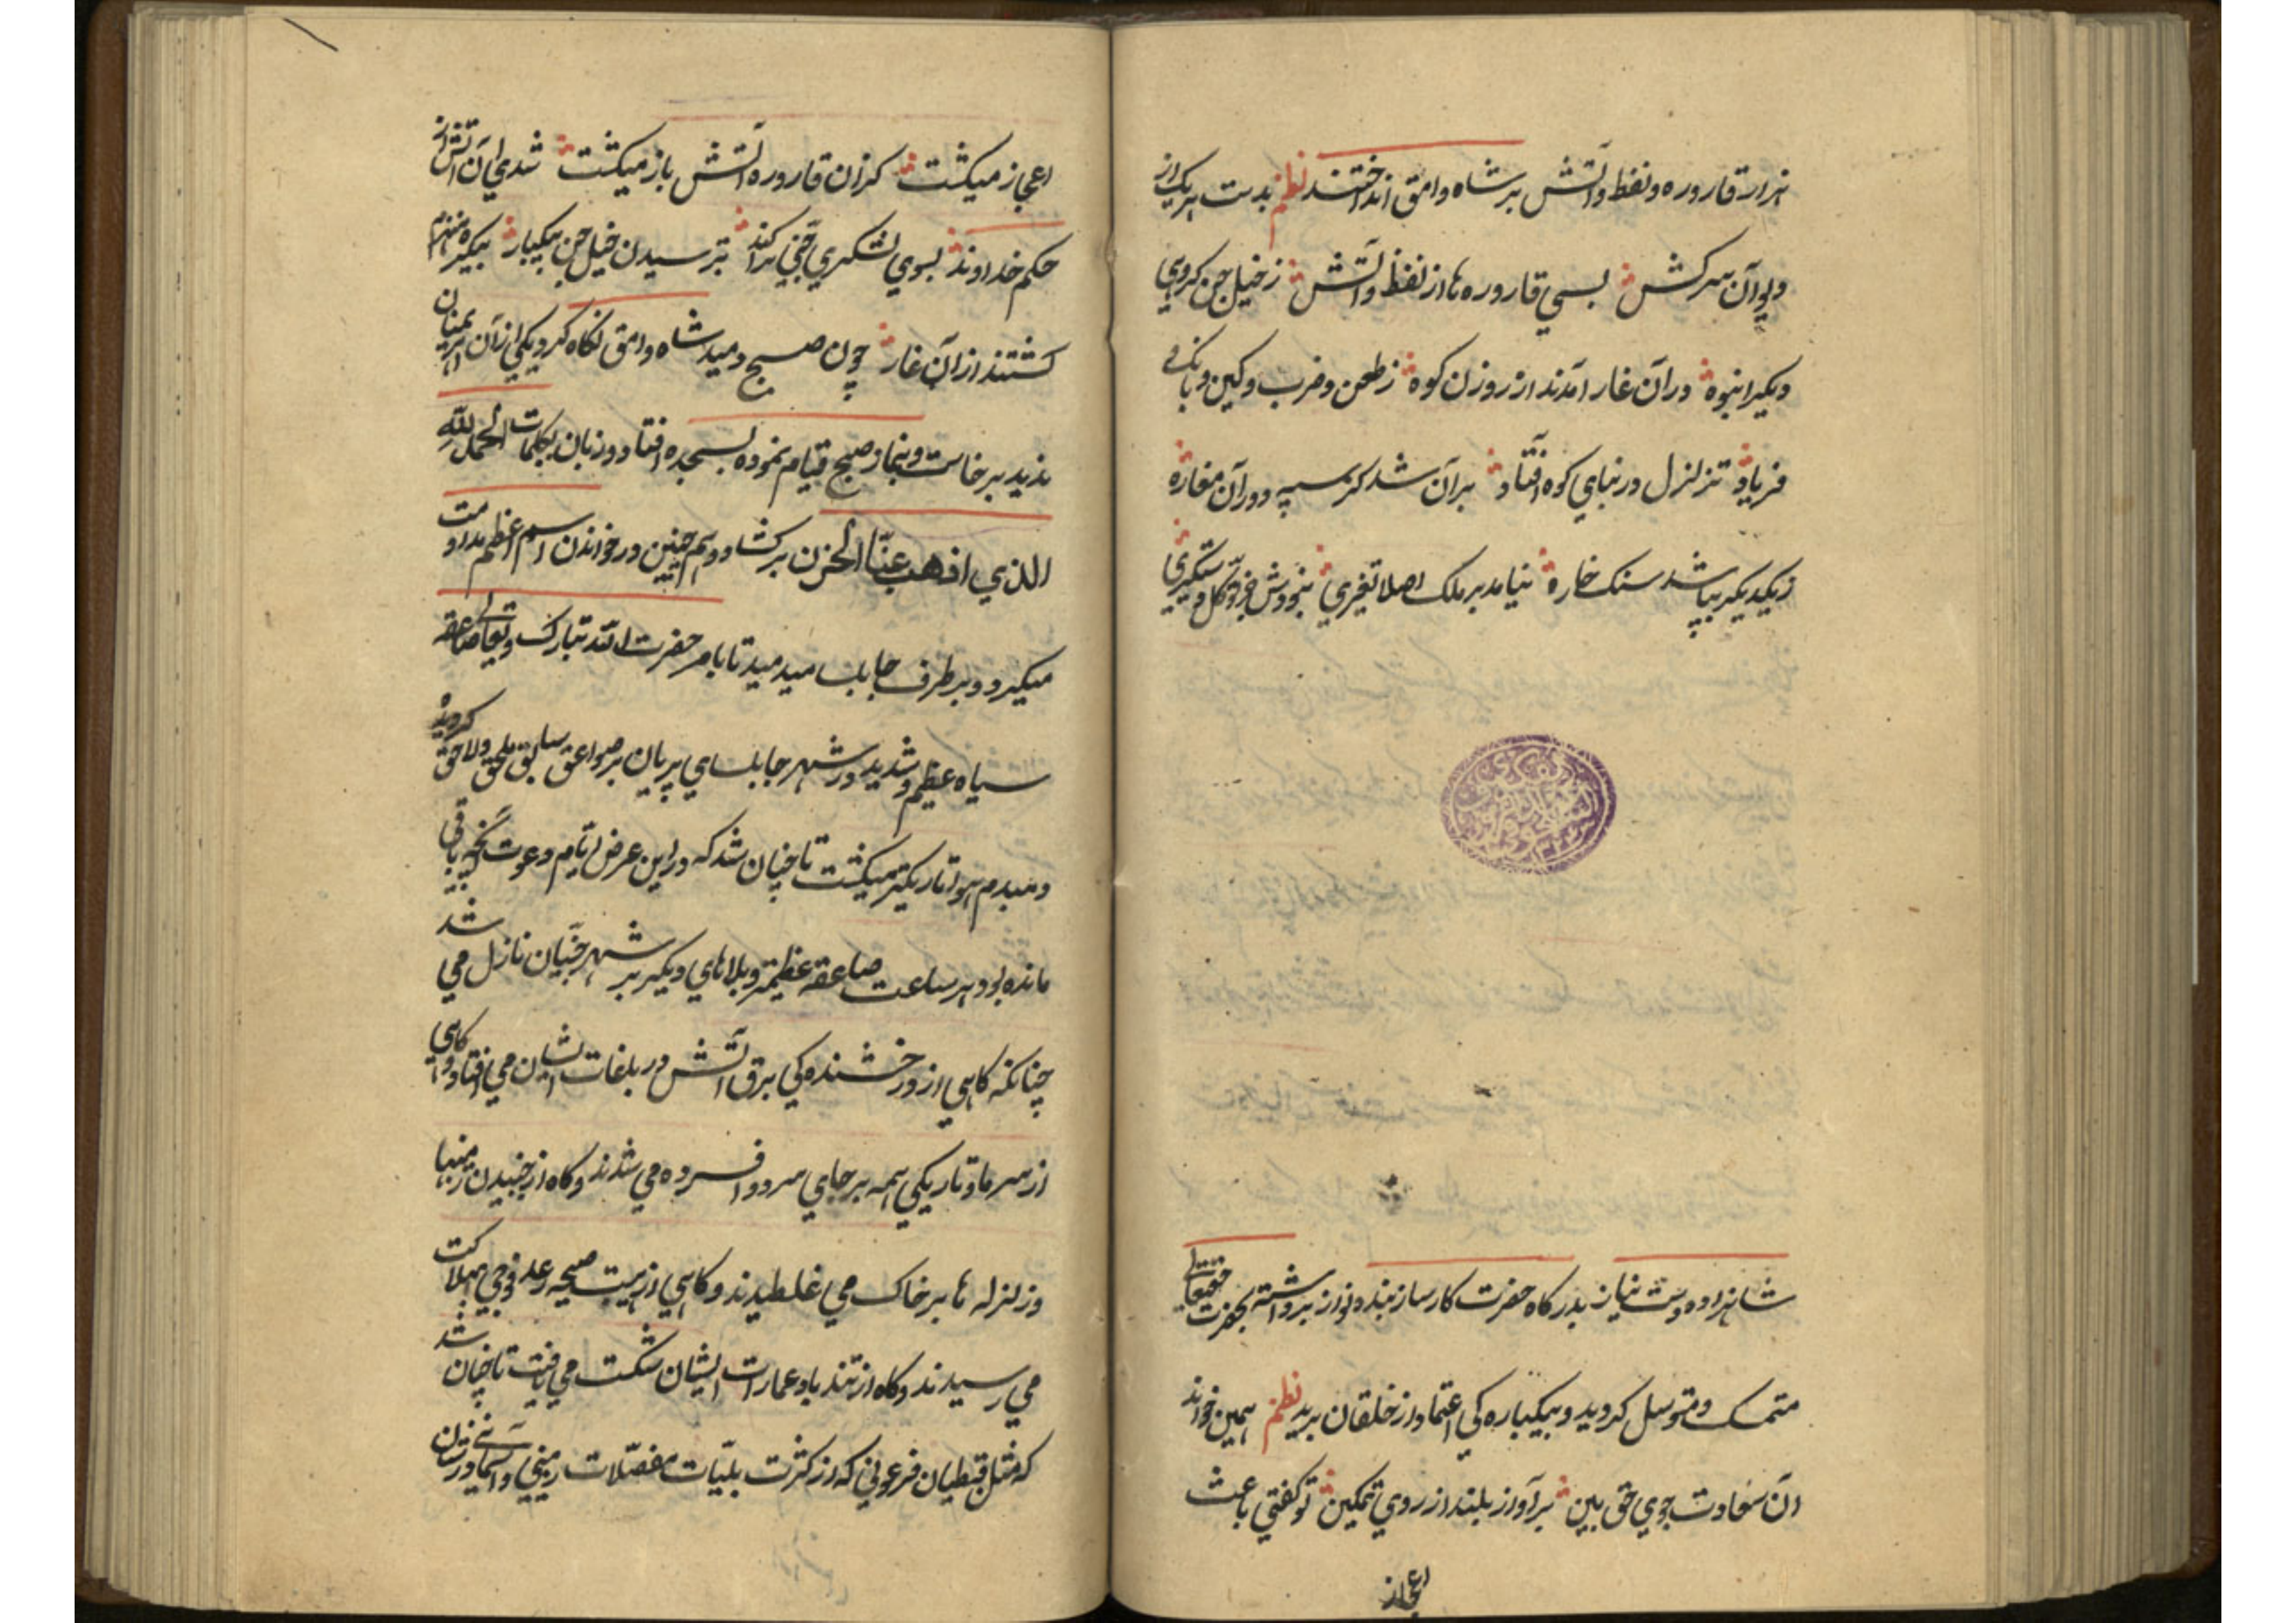 هزار قاروره و نفط و آتش بر شاه وامق انداختند نظم بدست هر یک از
دیوان سرکش بسی قاروره ها از نفط و آتش ز خیل جن کروهی
دیکر انبوه در آن غار آمدند از روزن کوه ز طعن و ضرب و کین و بانک
فریاد تزلزل در بنای کوه افتاد بر آن شد کز سپه در آن مغاره
ز یکدیکر بپاشد سنک خاره نیامد بر ملک اصلا تغیری بخودش جز توکل دستکیری
شاهزاده دست نیاز بدرکاه حضرت کارساز بنده نواز برداشته بحضرت حقتعالی
متمسک و متوسل کردید و بیکباره کی اعتماد از خلقان برید نظم همین خواند
آن سعادت جوی حق بین بر آواز بلند از روی تمکین تو کفتی باعث
اعجاز
اعجاز میکشت کزان قاروره آتش باز میکشت شدی آن آتش از
حکم خداوند بسوی لشکری جنی پراکند بترسیدن خیل جن بیکبار بیکره منهزم
کشتند از آن غار چون صبح دمید شاه وامق نکاه کرد یکی از آن اهریمنان
ندید برخاست و بنماز صبح قیام نموده بسجده افتاد و زبان بکلمات الحمد لله
الذی اذهب عنا الحزن برکشاد و همچنین در خواندن اسم اعظم مداومت
میکرد و بر طرف جابلسا میدمید تا بامر حضرت الله تبارک و تعالی صاعقه
سیاه عظیم و شدید در شهر جابلسای پریان بر صواعق سابق ملحق و لاحق کردیده
و همبدم هوا تاریکتر میکشت تا چنان شد که در این عرض ایام دعوت کنچه باقی
مانده بود هر ساعت صاعقه عظیمتر و بلاهای دیکر بر شهر جنیان نازل می شد
چنانکه کاهی از درخشنده کی برق آتش در بلغات ایشان می افتاد و کاهی
از سرما و تاریکی همه بر جای سرد و افسرده می شدند و کاه از جنبیدن زمینها
و زلزله ها بر خاک می غلطیدند و کاهی از هیبت صیحه رعد فوجی بهلاکت
می رسیدند و کاه از تند باد عمارات ایشان شکست می یافت تا چنان شد
که مثل قبطیان فرعونی که از کثرت بلیات مفصلات زمینی و آسمانی